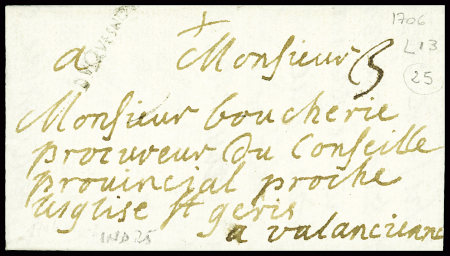 1706
L13
25
DUQUESNOY
a Monsieur 3
Monsieur boucherie
procureur du Conseille
provincial proche
leglise st geris
a valancienne
IND 25